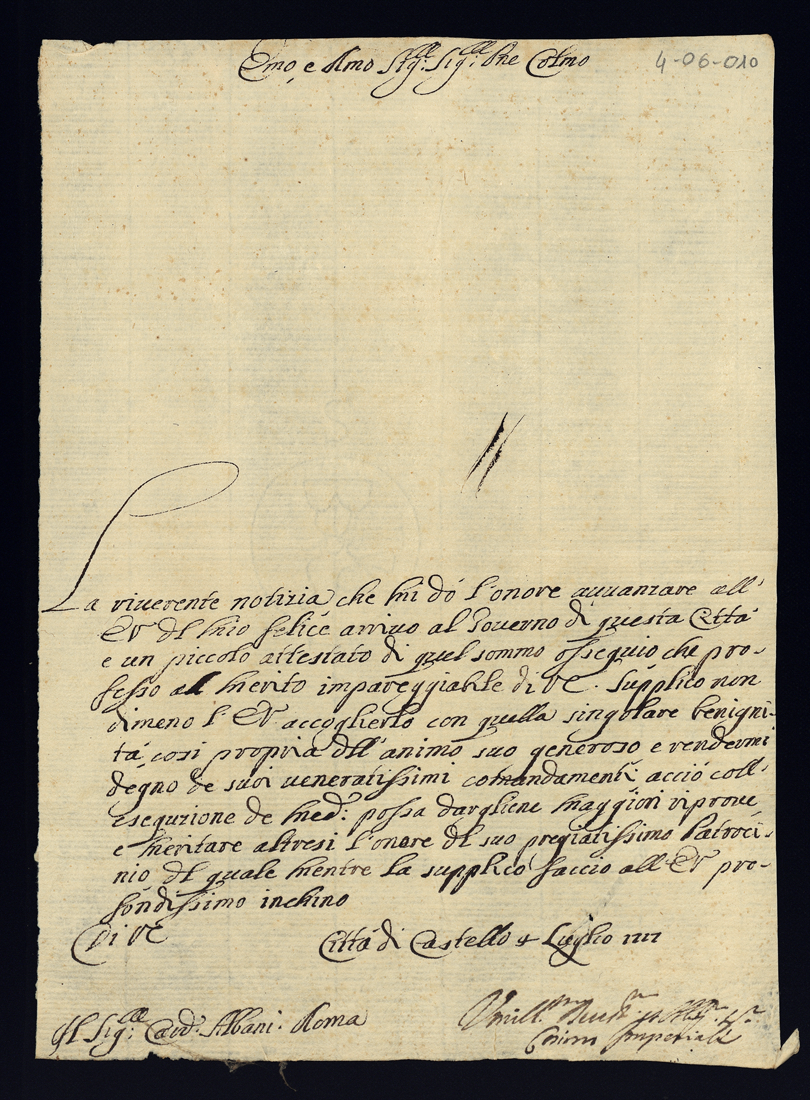 Emo, e Rmo Sig:re Sig:re Pne Colmo
4-06-010
La riverente notizia che mi dó l'onore avvanzare all'
EV del mio felice arrivo al Governo di questa Città
e un piccolo attestato di quel sommo ossequio che pro-
fesso al merito impareggiabile di VE. Supplico non
dimeno l'EV accoglierlo con quella singolare benigni-
tá cosi propria dell'animo suo generoso e rendermi
degno de suoi veneratissimi comandamenti acció coll'
esequzione de med: possa dargliene maggiori riprove,
e meritare altresi l'onore del suo pregiatissimo Patroci-
nio del quale mentre la supplico faccio all'EV pro-
fondissimo inchino
Di VE
Città di Castello 4 Luglio
Il Sig:re Card: Albani. Roma
Imperiali